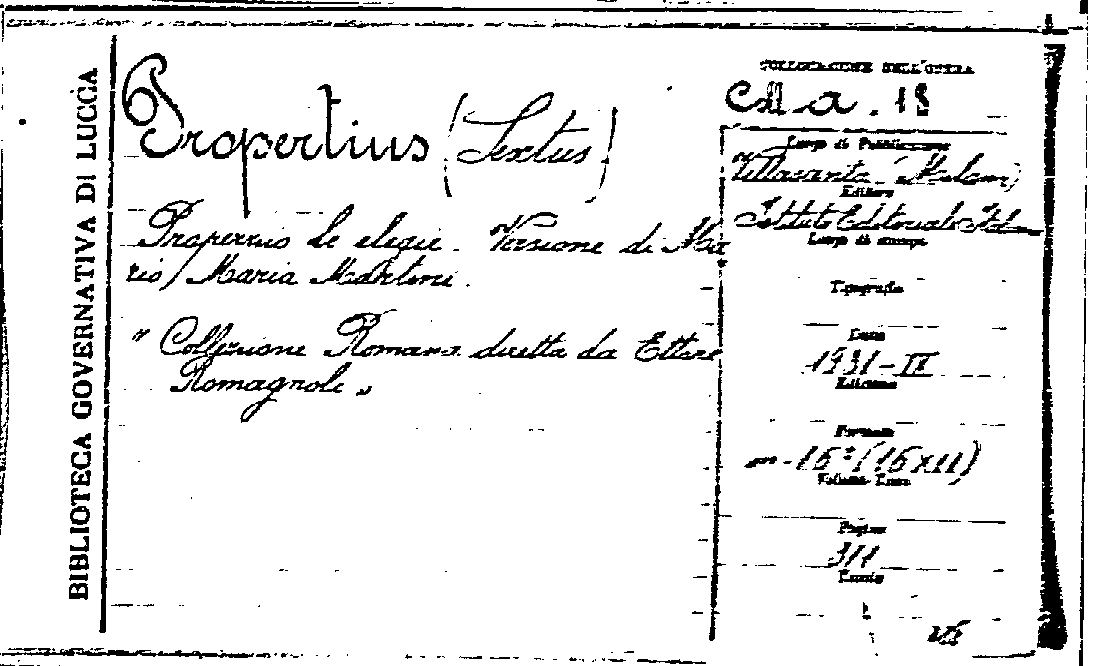 BIBLIOTECA GOVERNATIVA DI LUCCA
Propertius (Sextus)
Properzio Le elegie. Versione di Ma
rio Maria Martini.
"Collezione Romana diretta da Ettore
Romagnoli"
COLLOCAZIONE DELL'OPERA
a. 18
Luogo di Pubblicazione
Villasanta (Milano)
Editore
Istituto Editoriale Ital.
Luogo di stampa
Tipografia
Data
1931-IX
Edizione
Formato
in-16° (16x11)
Volume
Pagine
311